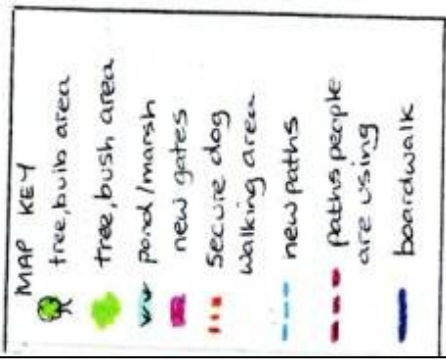 MAP KEY
tree, bulb area
tree, bush area
pond/marsh
new gates
secure dog
walking area
new paths
paths people
are using
boardwalk